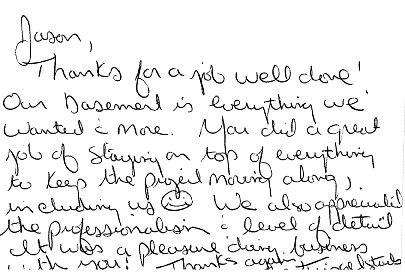 Jason,
Thanks for a job well done!
Our basement is everything we
wanted & more. You did a great
job of staying on top of everything
to keep the project moving along,
including us ☺ We also appreciated
the professionalism & level of detail
It was a pleasure doing business
with you! Thanks again